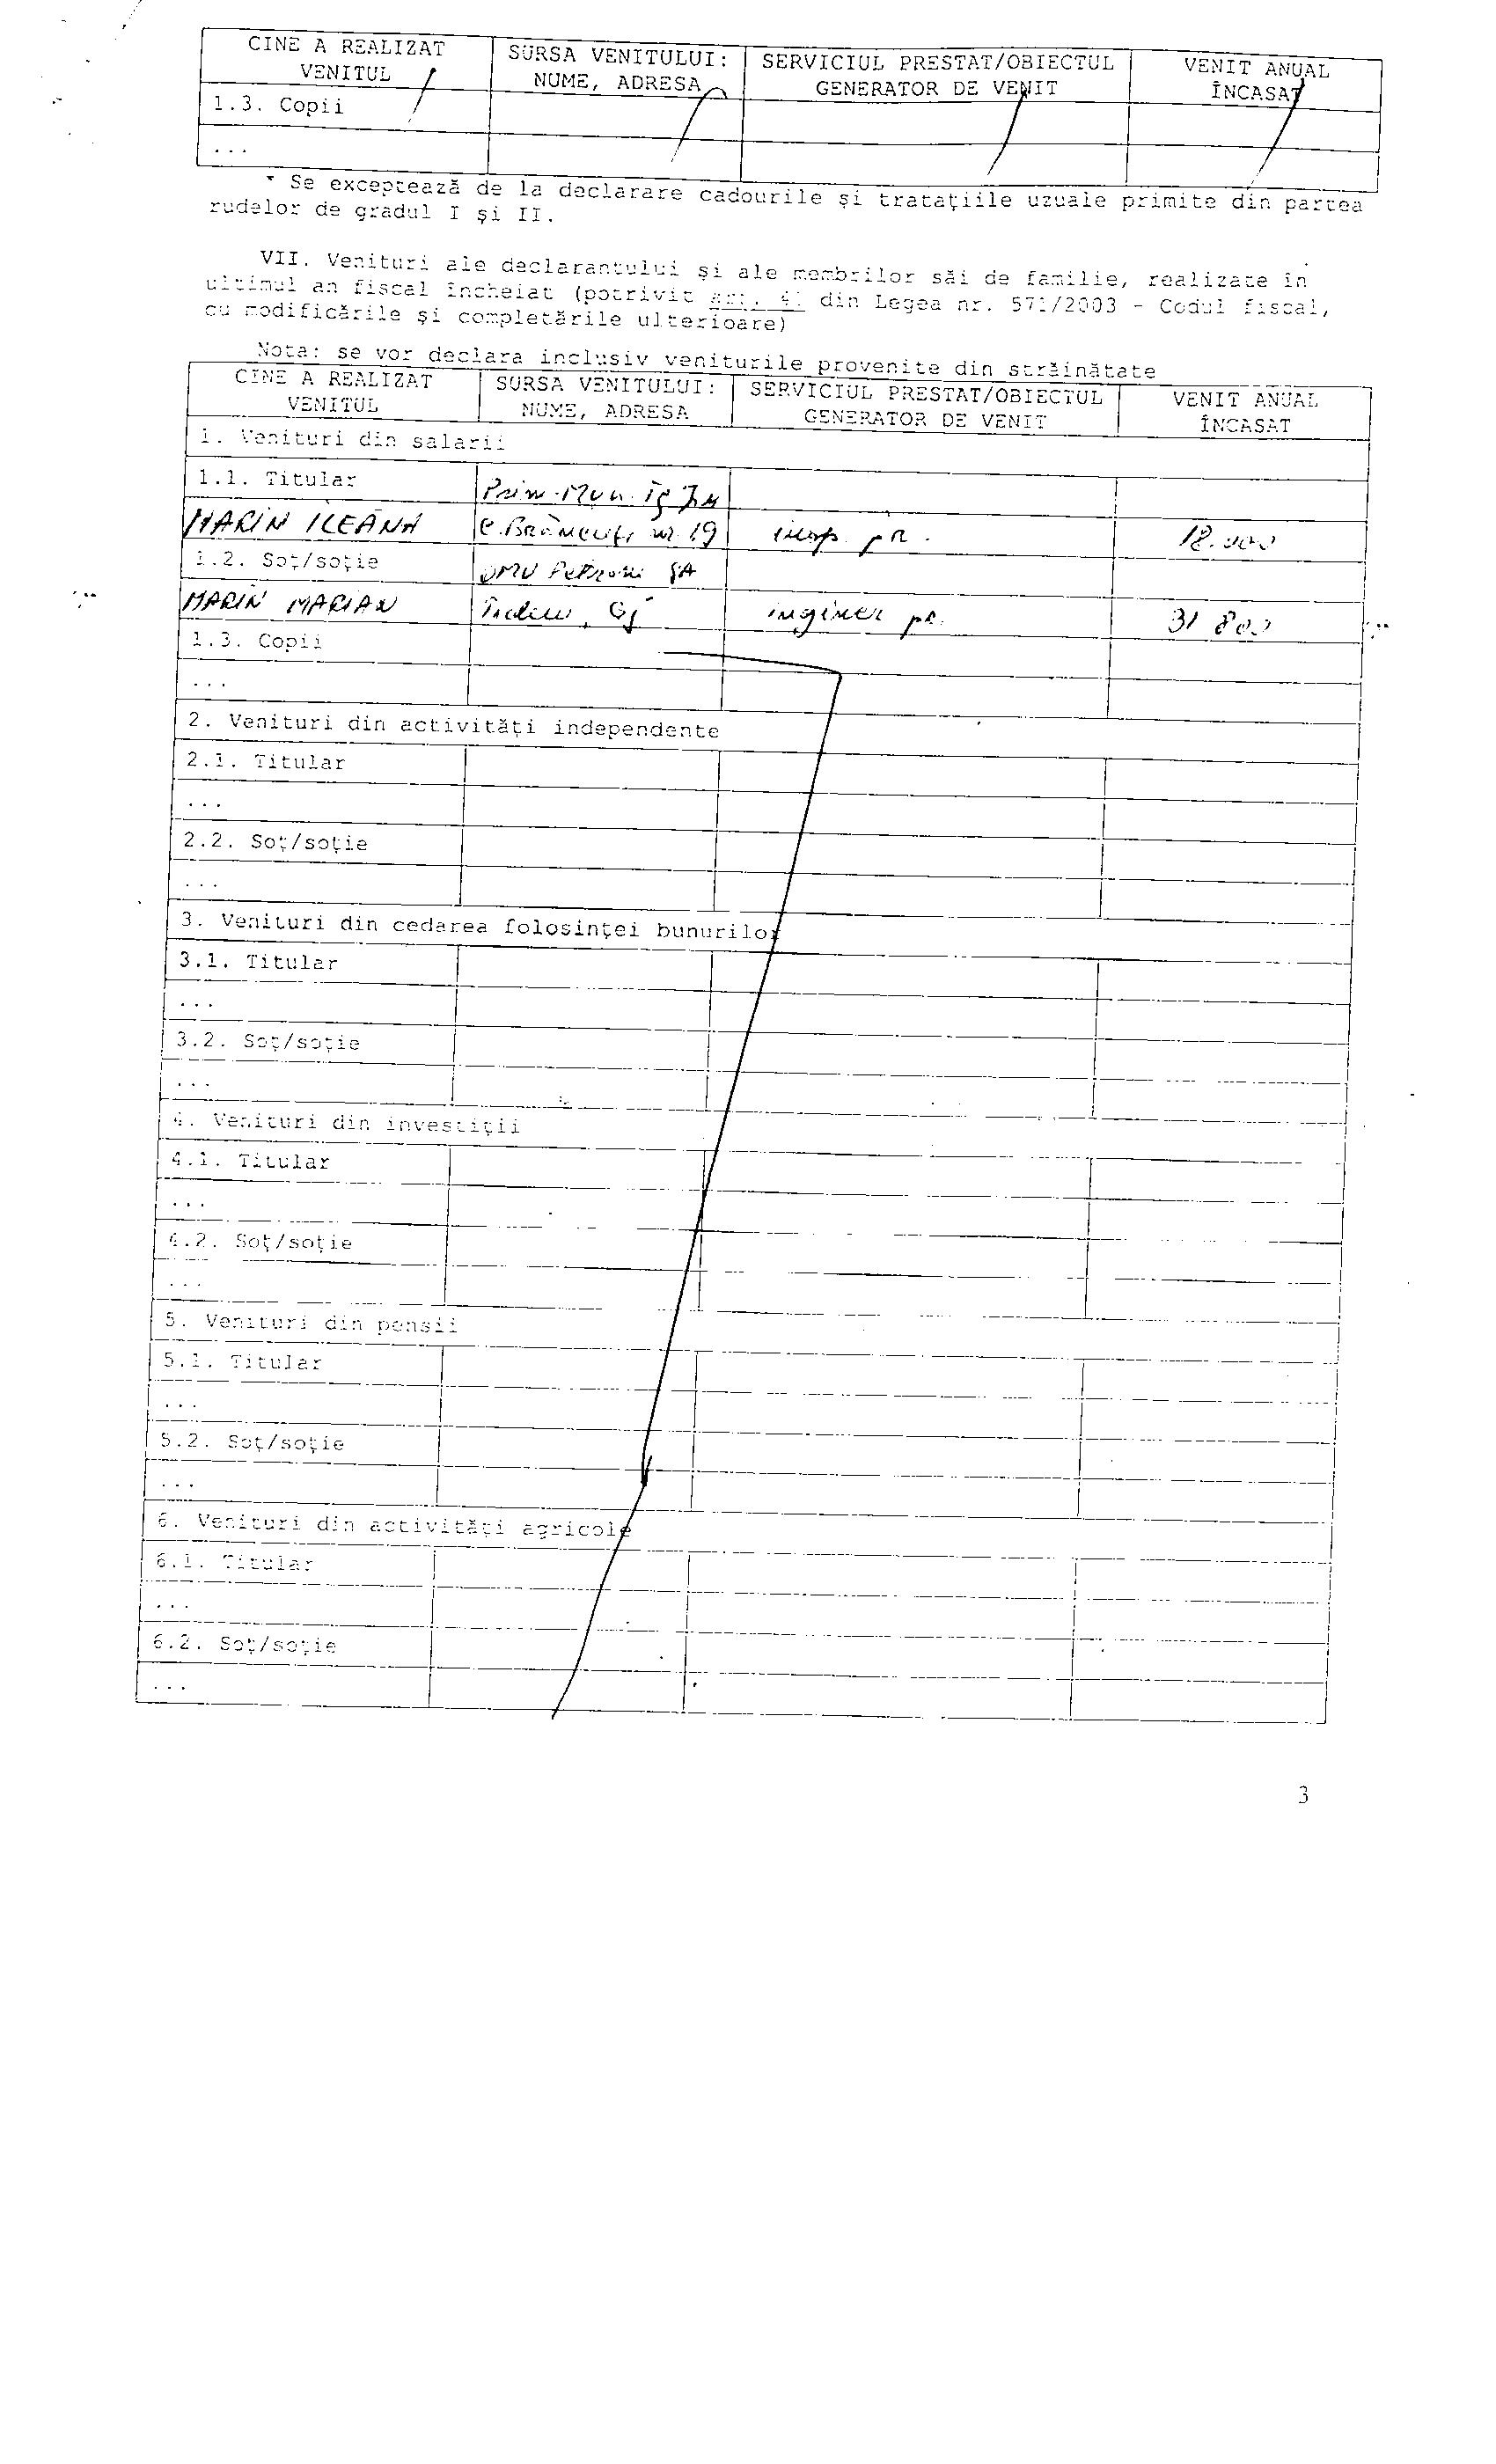 CINE A REALIZAT VENITUL
SURSA VENITULUI: NUME, ADRESA
SERVICIUL PRESTAT/OBIECTUL GENERATOR DE VENIT
VENIT ANUAL ÎNCASAT
1.3. Copii
...
* Se exceptează de la declarare cadourile și tratațiile uzuale primite din partea
rudelor de gradul I și II.
VII. Venituri ale declarantului și ale membrilor săi de familie, realizate în
ultimul an fiscal încheiat (potrivit art. 41 din Legea nr. 571/2003 - Codul fiscal,
cu modificările și completările ulterioare)
Nota: se vor declara inclusiv veniturile provenite din străinătate
CINE A REALIZAT VENITUL
SURSA VENITULUI: NUME, ADRESA
SERVICIUL PRESTAT/OBIECTUL GENERATOR DE VENIT
VENIT ANUAL ÎNCASAT
1. Venituri din salarii
1.1. Titular Prim. Mun. Tg Jiu
MARIN ILEANA C. Brâncuși nr. 19 insp. pr. 18.000
1.2. Soț/soție OMV Petrom SA
MARIN MARIAN Gj inginer pr. 31 800
1.3. Copii
...
2. Venituri din activități independente
2.1. Titular
...
2.2. Soț/soție
...
3. Venituri din cedarea folosinței bunurilor
3.1. Titular
...
3.2. Soț/soție
...
4. Venituri din investiții
4.1. Titular
...
4.2. Soț/soție
...
5. Venituri din pensii
5.1. Titular
...
5.2. Soț/soție
...
6. Venituri din activități agricole
6.1. Titular
...
6.2. Soț/soție
...
3